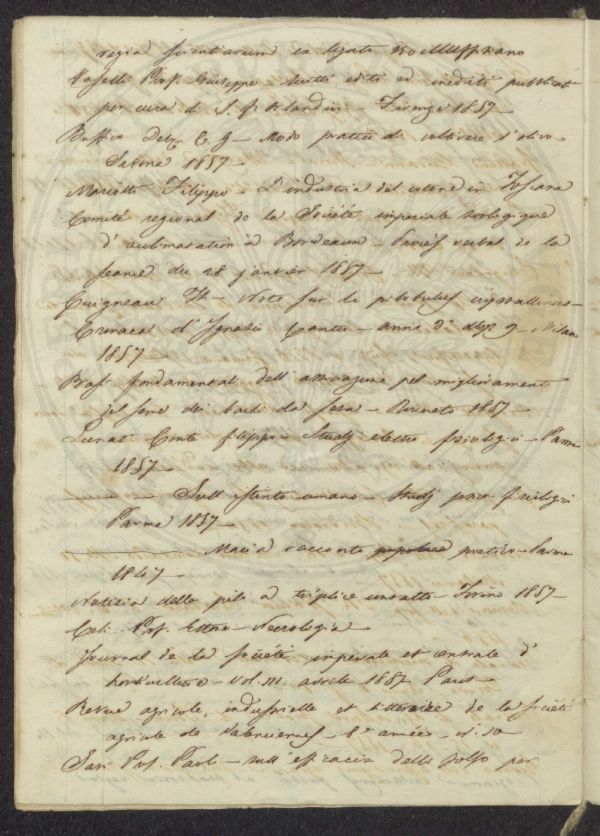 regia scientiarum
Prof. Giuseppe - scritti editi ed inediti pubblicati
per cura di - Firenze 1857
C. G. - Modo pratico di coltivare l'olivo -
Savone 1857
Mariotti Filippo - L'industria del cotone in Toscana
Comité regional de la Société imperiale zoologique
d'aclimatation à Bordeaux - Procès verbal de la
seance du 28 janvier 1857 -
Guigneau Th - Note sur le
Cronaca d'Ignazio Cantù - anno 3° disp. 9 - Milan
1857 -
Basi fondamentali dell' pel miglioramento
del seme dei bachi da seta - 1857
Linati Conte Filippo - Studj elettro fisiologici - Parma
1857 -
- - Sull'istinto umano - Studj psico-fisiologici
Parma 1857 -
- Maria racconto popolare poetico - Parma
1847 -
Notizia della pila a triplice contatto - Torino 1857 -
Celi Prof. Ettore - Necrologia
Journal de la Société imperiale et centrale d'
horticulture - Vol. III. avrile 1857 Paris -
Revue agricole, industrielle et litteraire de la Société
agricole de Valenciennes - 8e année - n. 10
Prof. Paolo - sull'efficacia dello zolfo per